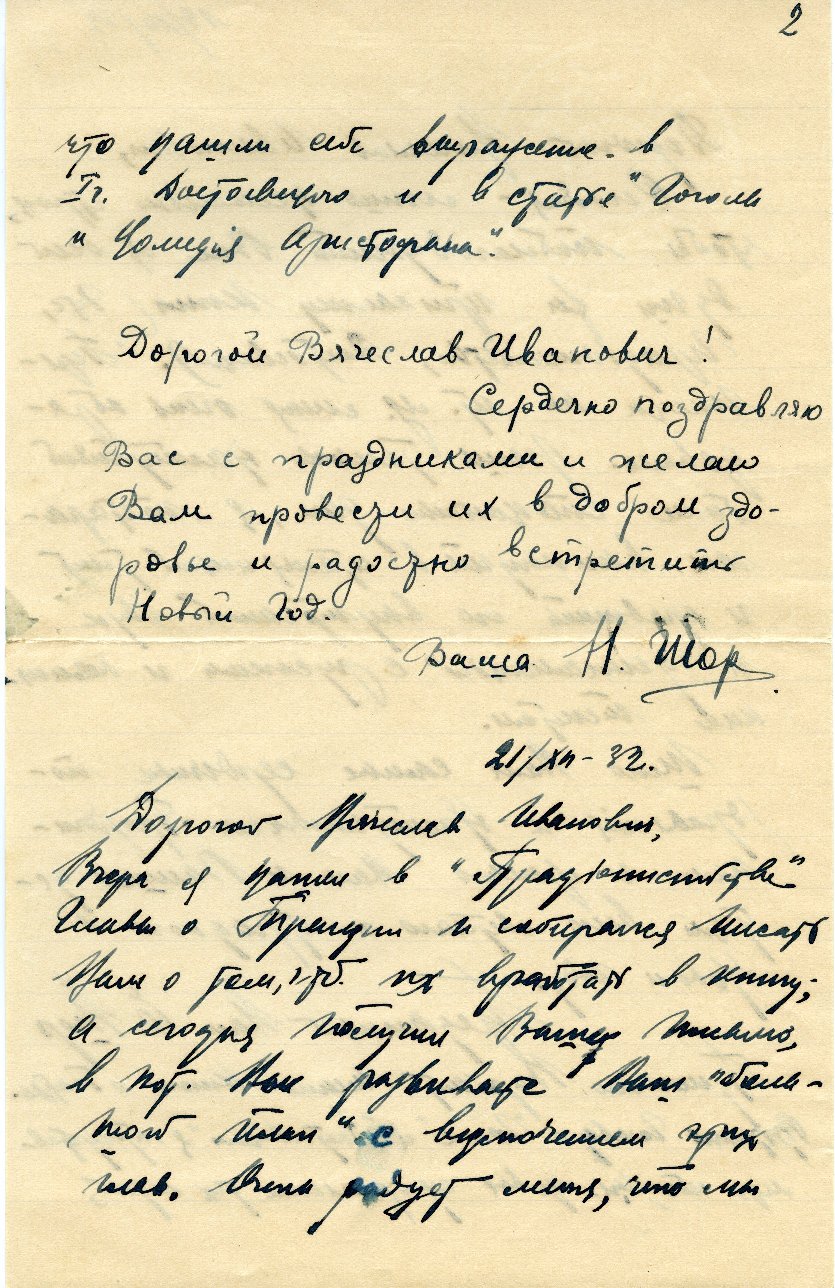 2
что нашли себе выражение в
Iч. Достоевского и в статье "Гоголь
и Комедия Аристофана".
Дорогой Вячеслав Иванович!
Сердечно поздравляю
Вас с праздниками и желаю
Вам провести их в добром здо-
ровье и радостно встретить
Новый Год.
Ваша Н Шор
21/XII-32.
Дорогой Вячеслав Иванович,
Вчера я нашел в "Прадіонисийстве"
Главы о Трагедии и собирался писать
Вам о том, чтб. их вработать в книгу;
а сегодня получил Ваше письмо,
в кот. Вы развиваете Ваш "боль-
шой план" с включением этих
глав. Очень радует меня, что мы